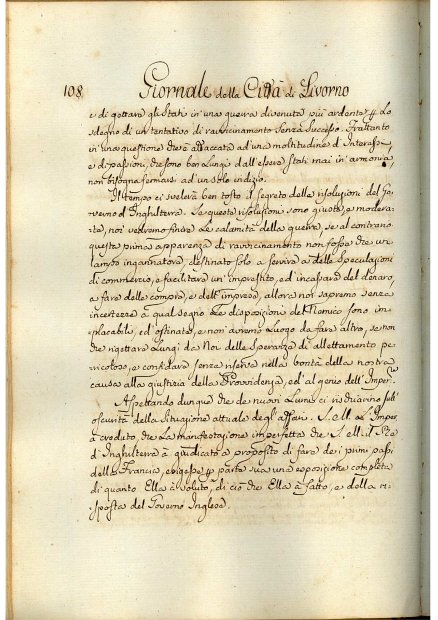 108 Giornale della Città di Livorno
e di gettare gli Stati in una guerra divenuta più ardente p lo
sdegno di un tentativo di ravvicinamento senza successo. Frattanto
in una questione che è attaccata ad una moltitudine d'Interessi,
e di passioni, che sono ben lungi dall'essere stati mai in armonia,
non bisogna fermarsi ad un solo indizio.
Il tempo ci svelerà ben tosto il segreto delle risoluzioni del Go-
verno d'Inghilterra. Se queste risoluzioni sono giuste, e modera-
te, noi vedremo finire le calamità della guerra, se al contrario
questa prima apparenza di ravvicinamento non fosse che un
lampo ingannatore, destinato solo a servire a delle speculazioni
di commercio, e facilitare un imprestito, ed incassare del denaro,
a fare delle compre, e dell'imprese, allora noi sapremo senza
incertezze a qual segno le disposizioni del Nemico sono im-
placabili, ed ostinate, e non avremo luogo da fare altro, se non
che rigettare lungi da Noi delle speranze di allettamento pe-
ricoloso, e confidare senza riserva nella bontà della nostra
causa alla giustizia della Provvidenza, ed al genio dell'Imper.re
Aspettando dunque che de nuovi Lumi ci rischiarino sull'
oscurità della situazione attuale degl'affari. S. M. l'Imper.
à creduto, che la manifestazione imperfetta che S. M. il Re
d'Inghilterra à giudicato a proposito di fare dei primi passi
della Francia, esigesse p parte sua una esposizione completa
di quanto Ella à voluto, di ciò che Ella à fatto, e della ri-
sposta del Governo Inglese.